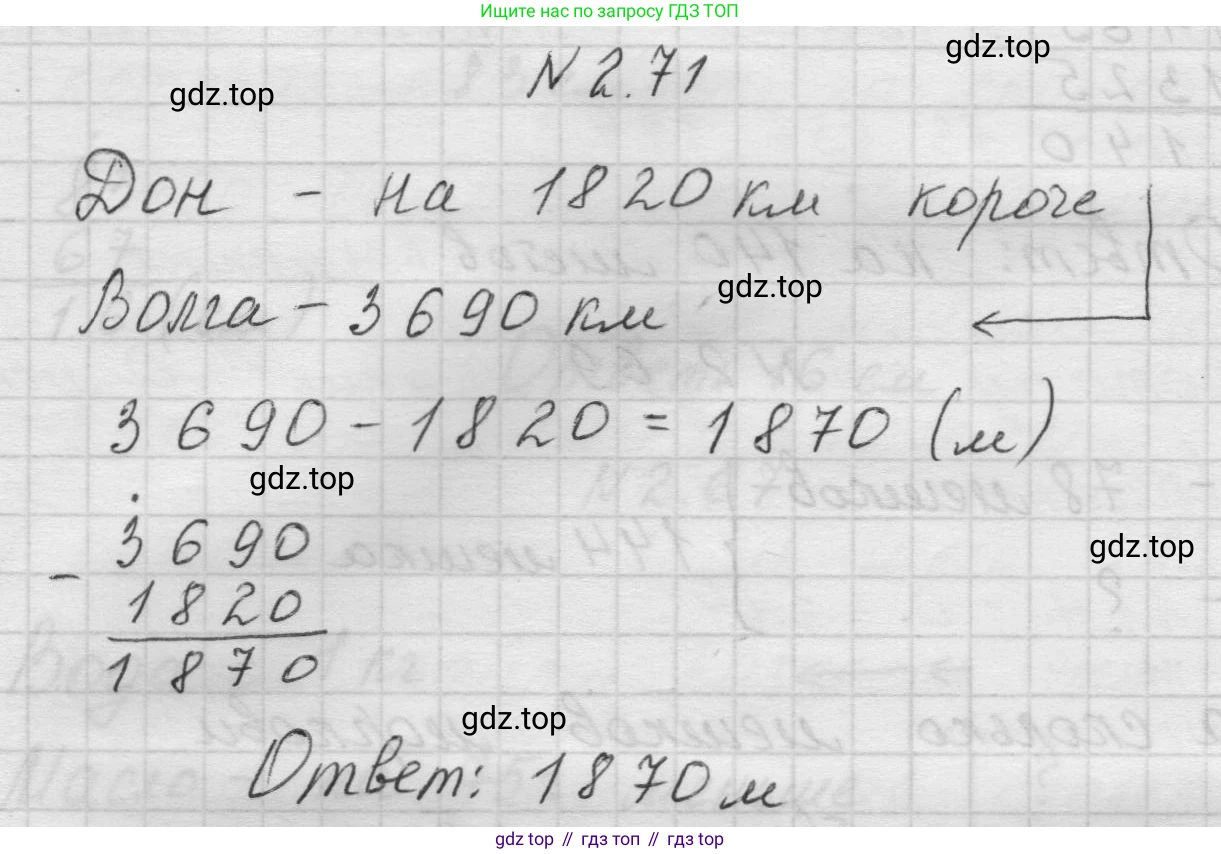 Ищите нас по запросу ГДЗ ТОП
N 2.71
gdz.top
gdz.top
Дон - на 1820 км короче
Волга - 3690 км
gdz.top
3690 - 1820 = 1870 (м)
gdz.top
3690
gdz.top
-
1820
1870
gdz.top
Ответ: 1870 м
gdz top // гдз топ // гдз top